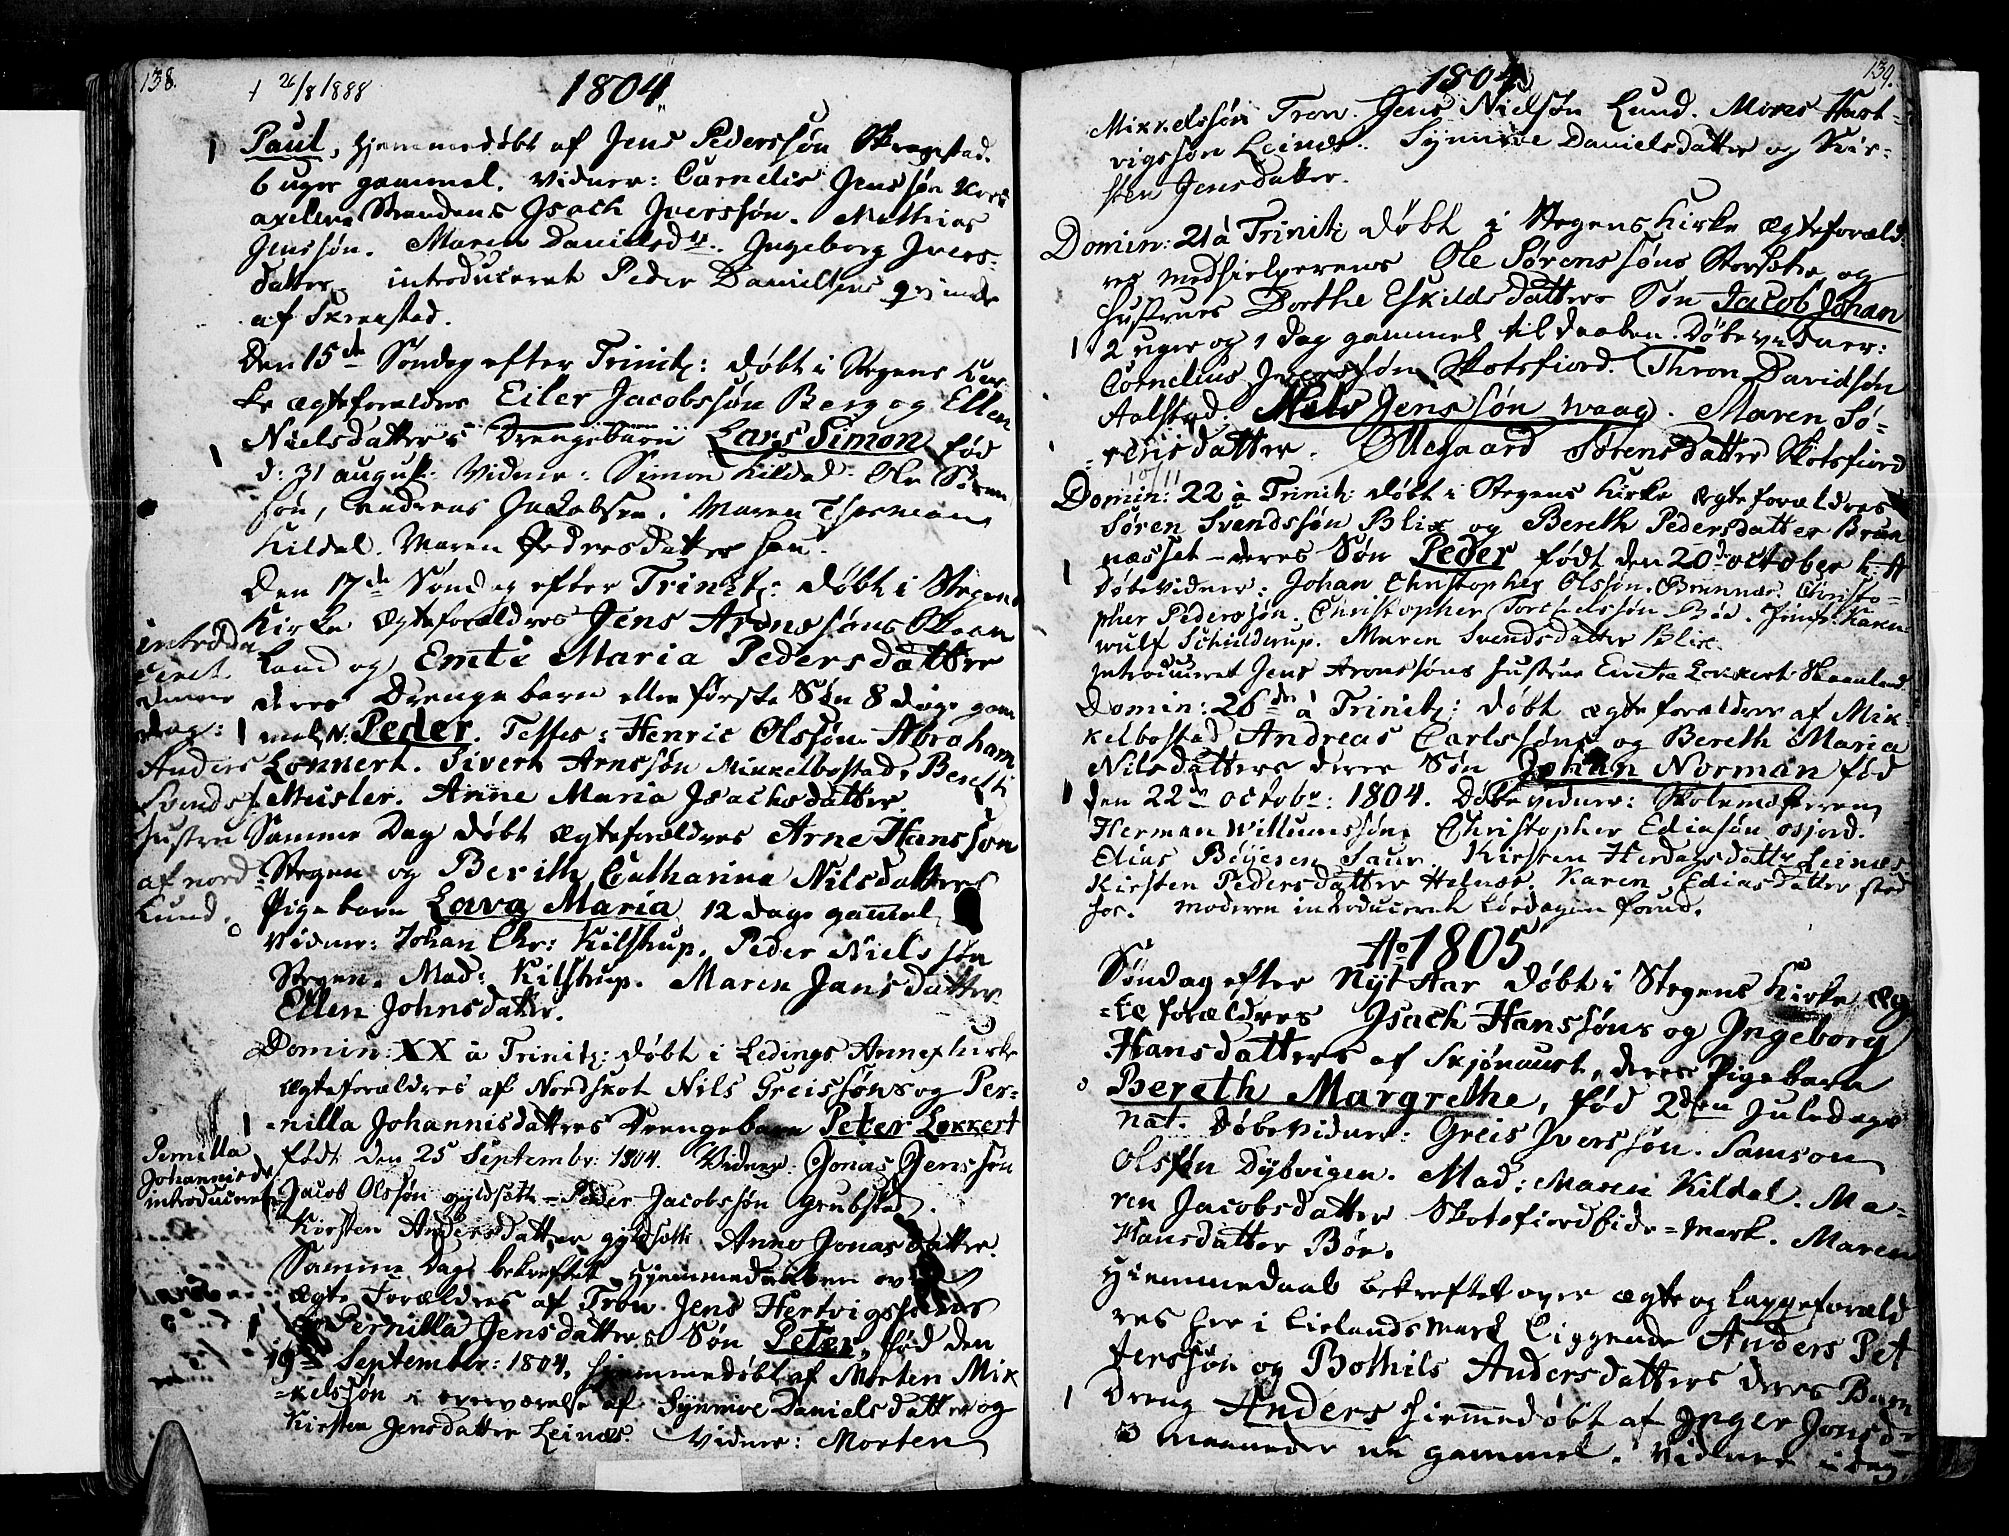 138.
1 26/8 1888
1804
1 Paul, hjemmedøbt af Jens Pedersøn Skrenstad.
6 uger gammel. Vidner: Cornelis Jenssøn
Strandens Isach Iverssøn. Mathias
Jenssøn. Maren Danielsdtr. Ingeborg Ivers-
datter. introduceret Peder Danielsens qvinde
af Skrenstad.
Den 15de Søndag efter Trinit: døbt i Stegens Kir-
ke ægteforældres Eiler Jacobssøn Berg og Ellen
Nielsdatters Drengebarn Lars Simon fød
1 d: 31 august: Vidner: Simon Kildal. Ole Søren
søn, Andreas Jacobsen. Maren
Kildal. Maren Pedersdatter
Den 17de Søndag efter Trinit: døbt i Stegens
Kirke ægteforældres Jens Aronssøns Skaan
land og Emti Maria Pedersdatter
deres Drengebarn eller første Søn 8 dage gam
1 mel, N. Peder. Testes: Henric Olssøn. Abraham
Lonnert. Sivert Arnssøn Mikkelbostad, Bereth
Musler. Anne Maria Isachsdatter.
introdu
ceret
denne
dag:
Anders
Svends:
Hustru
af nord
Lund.
Samme Dag døbt ægteforældres Arne Hanssøn
Stegen og Berith Catharina Nilsdatters
Pigebarn Lava Maria 12 dage gammel
Vidner: Johan Chr: Kilstrup. Peder Nielssøn
Stegen. Mad: Kilstrup. Maren Jansdatter
Ellen Johnsdatter.
Domin: XX à Trinit: døbt i Ledings Annex kirke
ægteforældres af Nordskot Nils Greissøns og Per-
1 nilla Johannisdatters Drengebarn Peter Lekkert
født den 25 Septembr: 1804. Vidner: Jonas Jenssøn
Jacob Olssøn gyldsætt- Peder Jacobssøn Grubstad.
Kirsten Andersdatter gyldsætt. Anne Jonasdatter.
Pernilla
Johannisd.
introduceret
Samme Dag bekreftet hjemmedaaben over
ægte Forældres af Tron. Jens Hertvigssøns
1 og Pernilla Jensdatters Søn Peter, fød den
19de September: 1804, hjemmedøbt af Morten Mik
kelssøn i overværelse af Synnive Danielsdatter og
Kirsten Jensdatter Leines. Vidner: Morten
139.
1804
Mikkelssøn Tron. Jens Nielsøn Lund. Mons Hart-
vigssøn Leines. Synnive Danielsdatter og Kir-
sten Jensdatter.
Domin: 21 à Trinit: døbt i Stegens Kirke ægteforæld-
res medhielperens Ole Sørenssøns Storsætre og
Hustrues Dorthe Eskildsdatters Søn Jacob Johan
1 2 uger og 1 dag gammel til daaben. Døbevidner:
Cornelius Jenssøn Skotsfiord. Thron Davidsøn
Aalstad. Niels Jenssøn Waag. Maren Sø-
rensdatter. Ollegaard Sørensdatter Skotsfiord
Domin: 22 à Trinit: døbt i Stegens Kirke ægteforældres
Søren Svendssøn Blix og Bereth Pedersdatter Brun
næsset - deres Søn Peder født den 20de october h. A
1 døbevidner: Johan Christopher Olssøn. Brunnæs. Christo-
pher Pederssøn. Christopher Bø. Karen
wulf Schilderup. Maren Svendsdatter Blix.
Introduceret Jens Aronssøns Hustrue Emetia Leckert Skaanland.
Domin: 26de à Trinit: døbt ægteforældre af Mik-
kelbostad Andreas Carlssøns og Bereth Maria
Nilsdatters deres Søn Johan Norman fød
1 den 22de octobr: 1804. Døbevidner: Skolemesteren
Herman Willumssøn, Christopher Ediasøn osjord.
Elias Bøyesen Saur. Kirsten Herdagsdattr Leinæs
Kirsten Pedersdatter Helnæs. Karen Ediasdatter sted
hos. Moderen introduceret Lørdagen forud.
Ao 1805
Søndag efter Nyt Aar døbt i Stegens Kirke æg-
te forældres Isach Hanssøns og Ingeborg
Hansdatters af Skjønaust, deres Pigebarn
Bereth Margrethe, fød 2den Juledags
nat. Døbevidner: Greis Iverssøn. Samson
Olssøn Dybvigen. Mad: Maren Kildal. Ma-
ren Jacobsdatter Skotsfiordfide=mark. Maren
Hansdatter Bøe.
Hiemmedaab bekreftet over ægte og lappeforæld
res her i Lielandsmark liggende Anders Pet
terssøn og Bothils Andersdatters deres Barn
1 dreng Anders hiemmedøbt af Inger Jonsdr
3 maaneder nu gammel. Vidner i dag